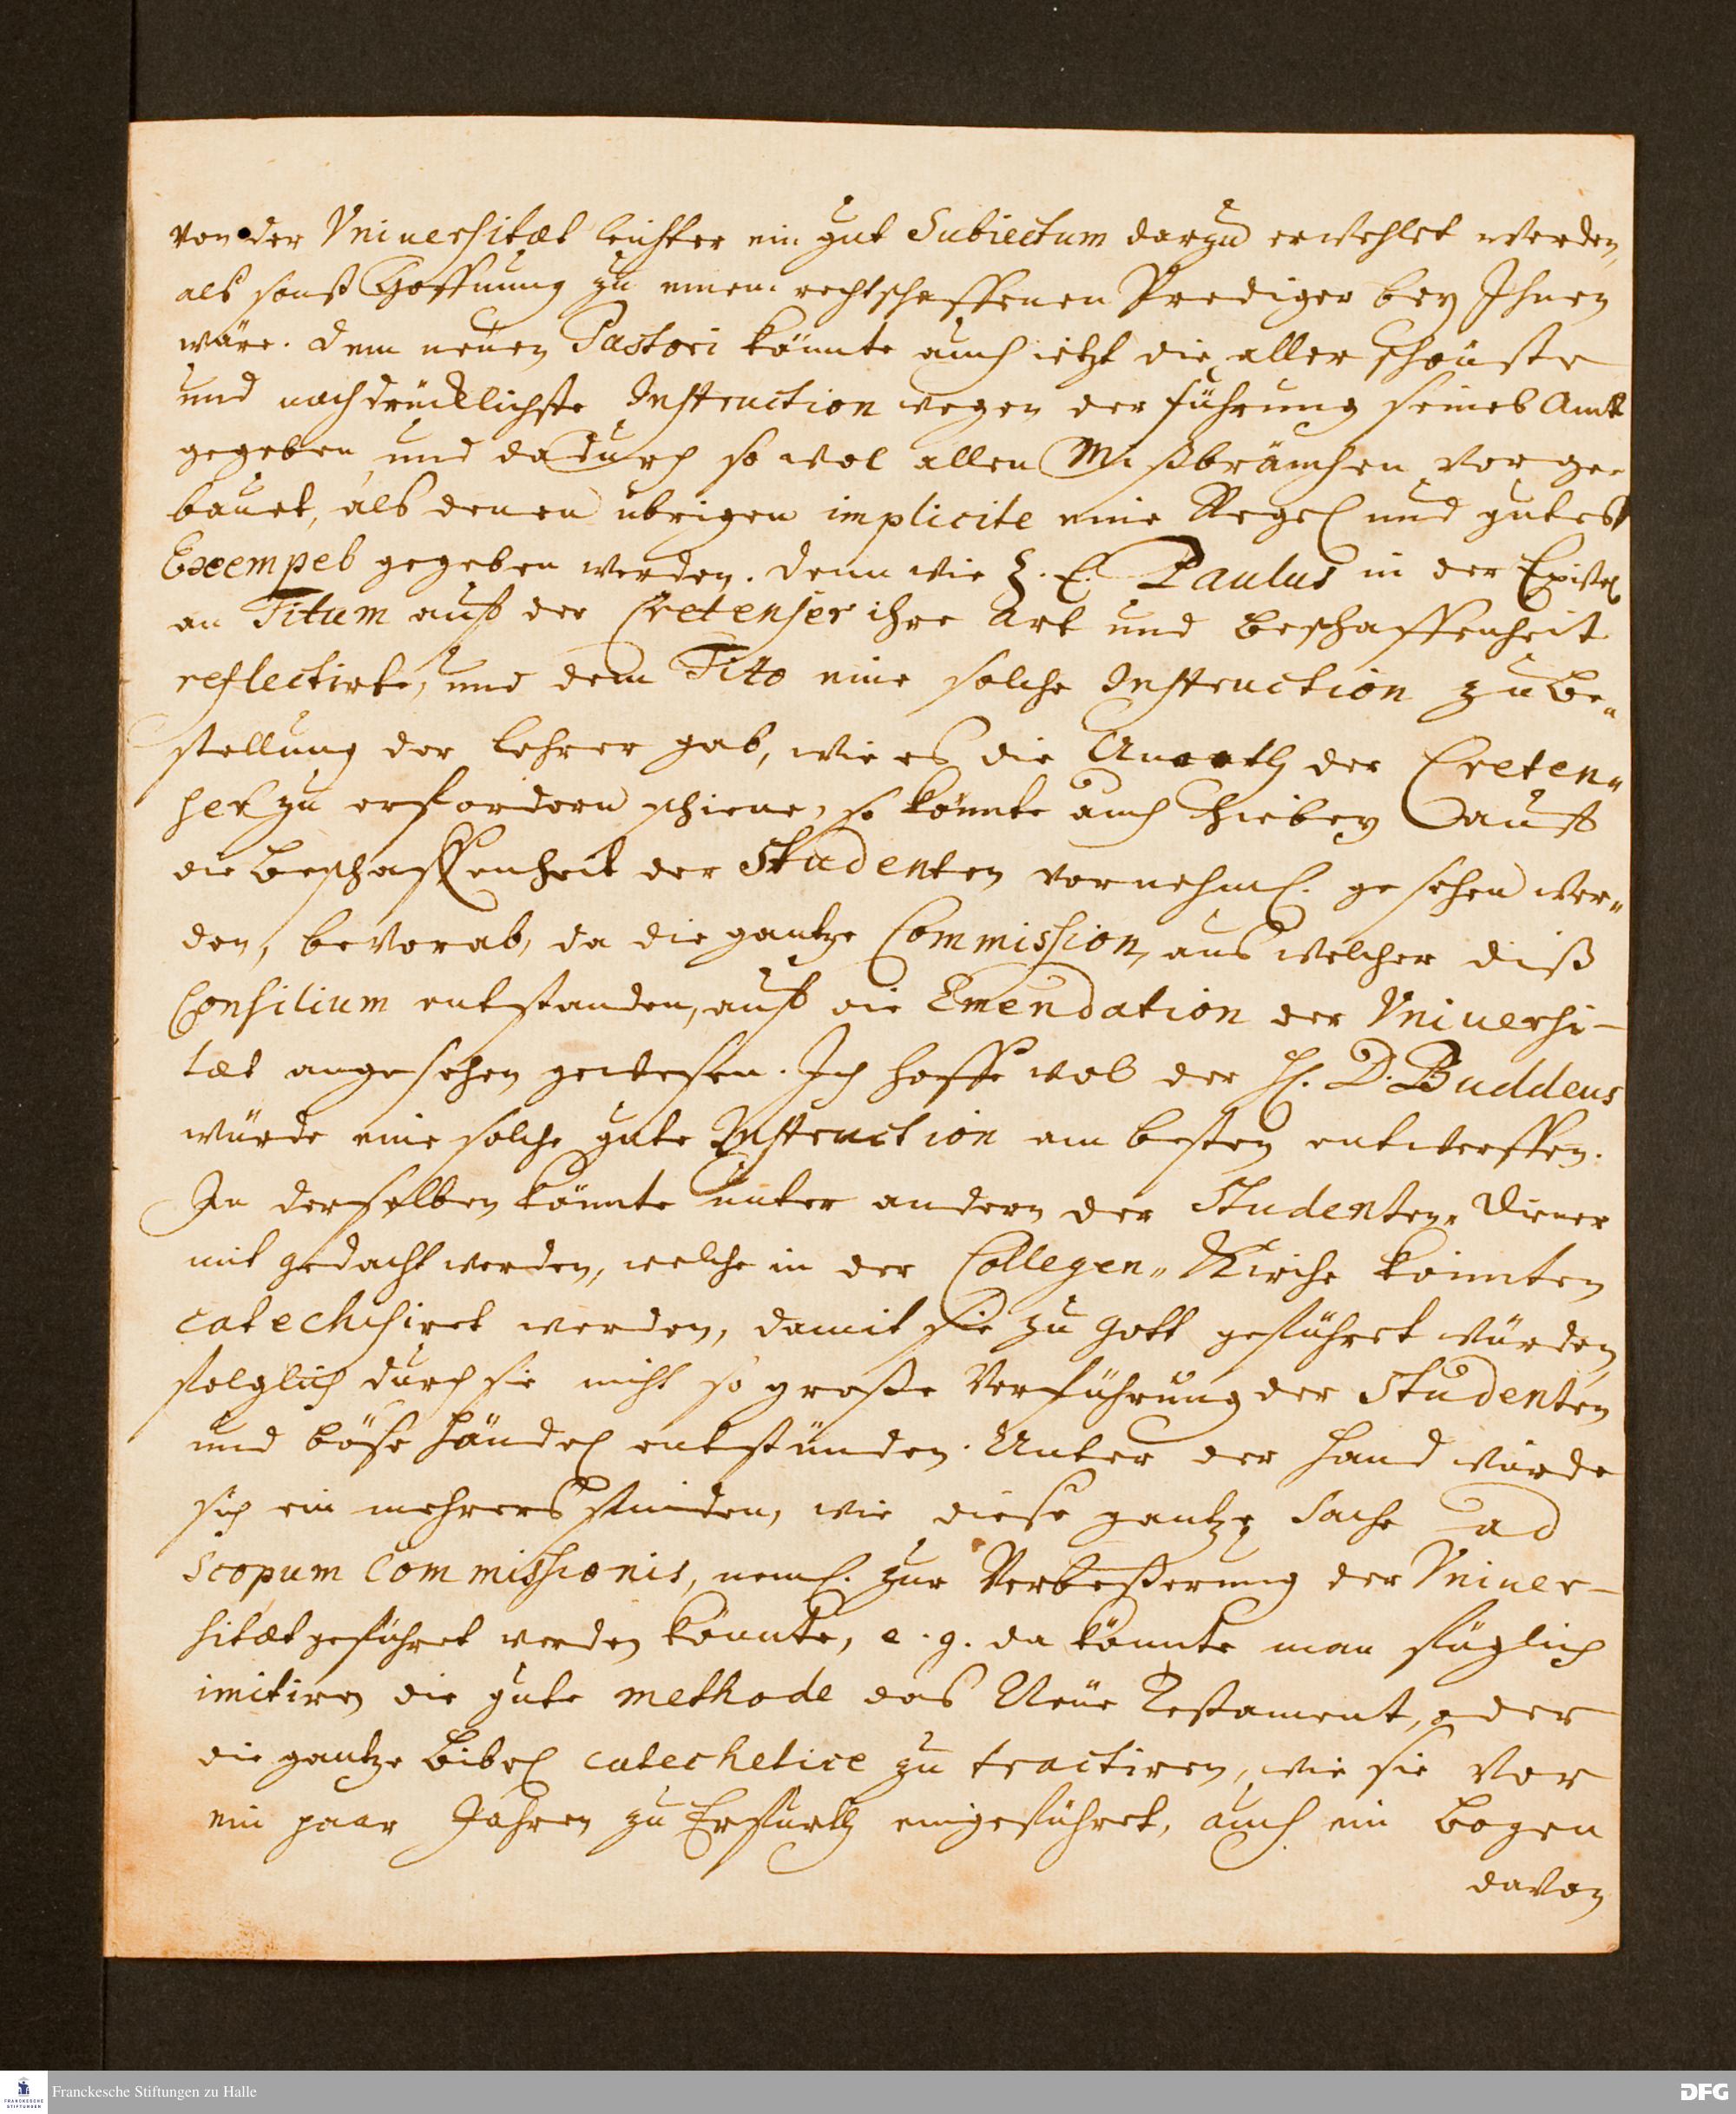 von der Vniuersitæt leichter ein gut Subiectum darzu erwehlet werden,
als sonst Hoffnung zu einem rechtschaffenen Prediger bey Ihnen
wäre. Dem neuen Pastori könnte auch ietzt die aller schönste
und nachdrücklichste Instruction wegen der führung seines Amts
gegeben und dadurch so wol allen Mißbräuchen vorge-
bauet, als denen übrigen implicite eine Regel und gutes
Exempel gegeben werden. Denn wie z. E. Paulus in der Epistel
an Titum auff der Cretenser ihre Art und Beschaffenheit
reflectirte, und dem Tito eine solche Instruction zu Be-
stellung der Lehrer gab, wie es die Unarth der Creten-
ser zu erfordern schiene, so könnte auch hiebey auff
die Beschaffenheit der Studenten vornehml. gesehen wer-
den, bevorab, da die gantze Commission, aus welcher diß
Consilium entstanden, auff die Emendation der Vniuersi-
tæt angesehen gewesen. Ich hoffe wol der H. D. Buddeus
würde eine solche gute Instruction am besten entwerffen.
In derselben könnte unter andern der Studenten-Diener
mit gedacht werden, welche in der Collegen-Kirche könnten
catechisiret werden, damit sie zu Gott geführet würden,
folglich durch sie nicht so große Verführung der Studenten
und böse Händel entstünden. Unter der Hand würde
sich ein mehrers finden, wie diese gantze Sache ad
scopum Commissionis, neml. zur Verbeßerung der Vniuer-
sitæt geführet werden könnte, e. g. da könnte man füglich
imitiren die gute methode das Neue Testament, oder
die gantze Bibel catechetice zu tractiren, wie sie vor
ein paar Jahren zu Erffurth eingeführet, auch ein Bogen
davon
Franckesche Stiftungen zu Halle
FRANCKESCHE
STIFTUNGEN
DFG